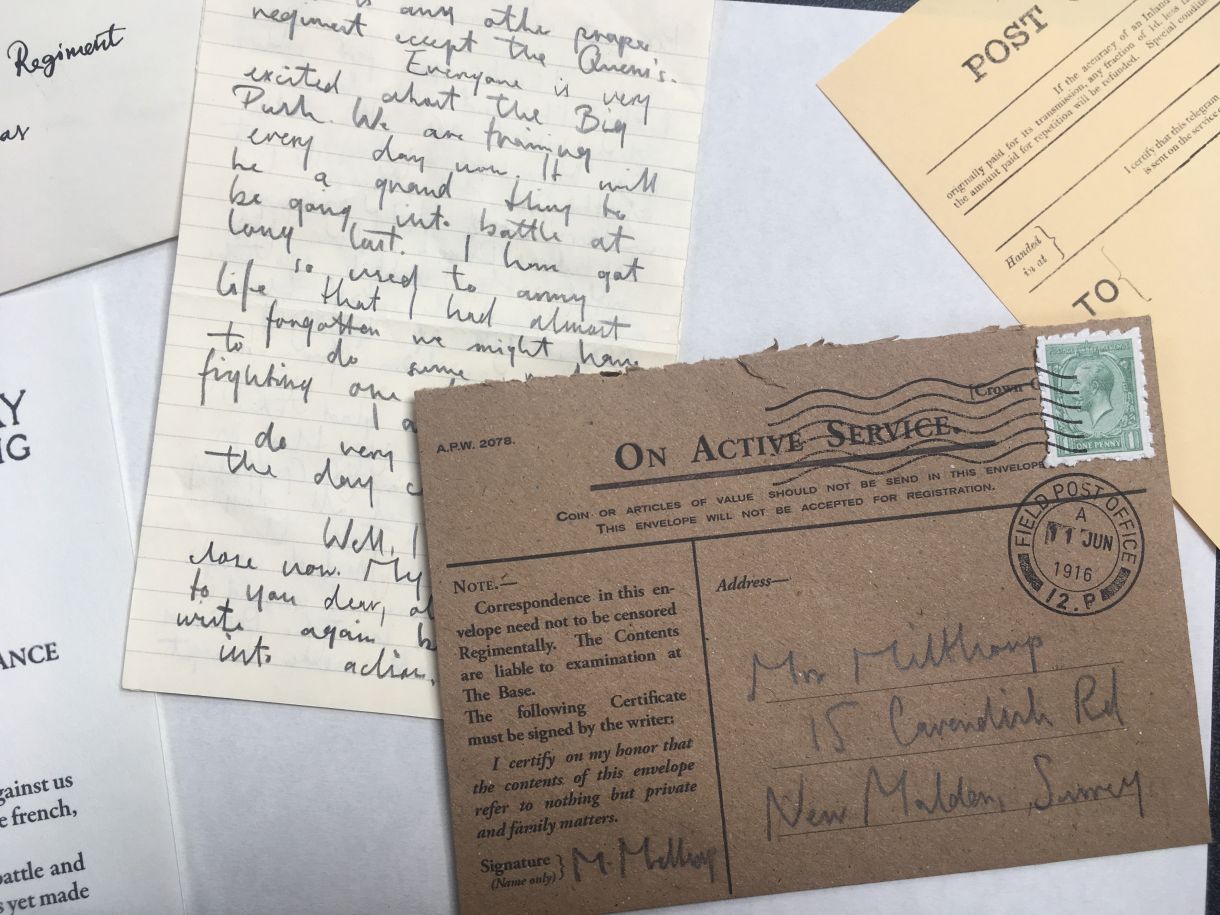 Regiment
as
is any othe proper
regiment except the Queen's.
Everyone is very
excited about the Big
Push. We are training
every day now. It will
be a grand thing to
be going into battle at
long last. I have got
so used to army
life that I had almost
forgotten we might have
to do some
fighting one
I a
do very
the day
Well, I
close now. My
to you dear,
write again b
into action.
POST
If the accuracy of an Inland
originally paid for its transmission, any fraction of 1d. less
the amount paid for repetition will be refunded. Special conditions
I certify that this telegram
is sent on the service
Handed
in at }
TO {
AY
NG
ANCE
gainst us
e french,
battle and
s yet made
A.P.W. 2078.
[Crown C
ON ACTIVE SERVICE.
COIN OR ARTICLES OF VALUE SHOULD NOT BE SEND IN THIS ENVELOPE
THIS ENVELOPE WILL NOT BE ACCEPTED FOR REGISTRATION.
ONE PENNY
FIELD POST OFFICE
A
11 JUN
1916
12.P
NOTE.—
Correspondence in this en-
velope need not to be censored
Regimentally. The Contents
are liable to examination at
The Base.
The following Certificate
must be signed by the writer:
I certify on my honor that
the contents of this envelope
refer to nothing but private
and family matters.
Signature } M. Millthorp
(Name only)
Address—
Mrs Millthorp
15 Cavendish Rd
New Malden, Surrey